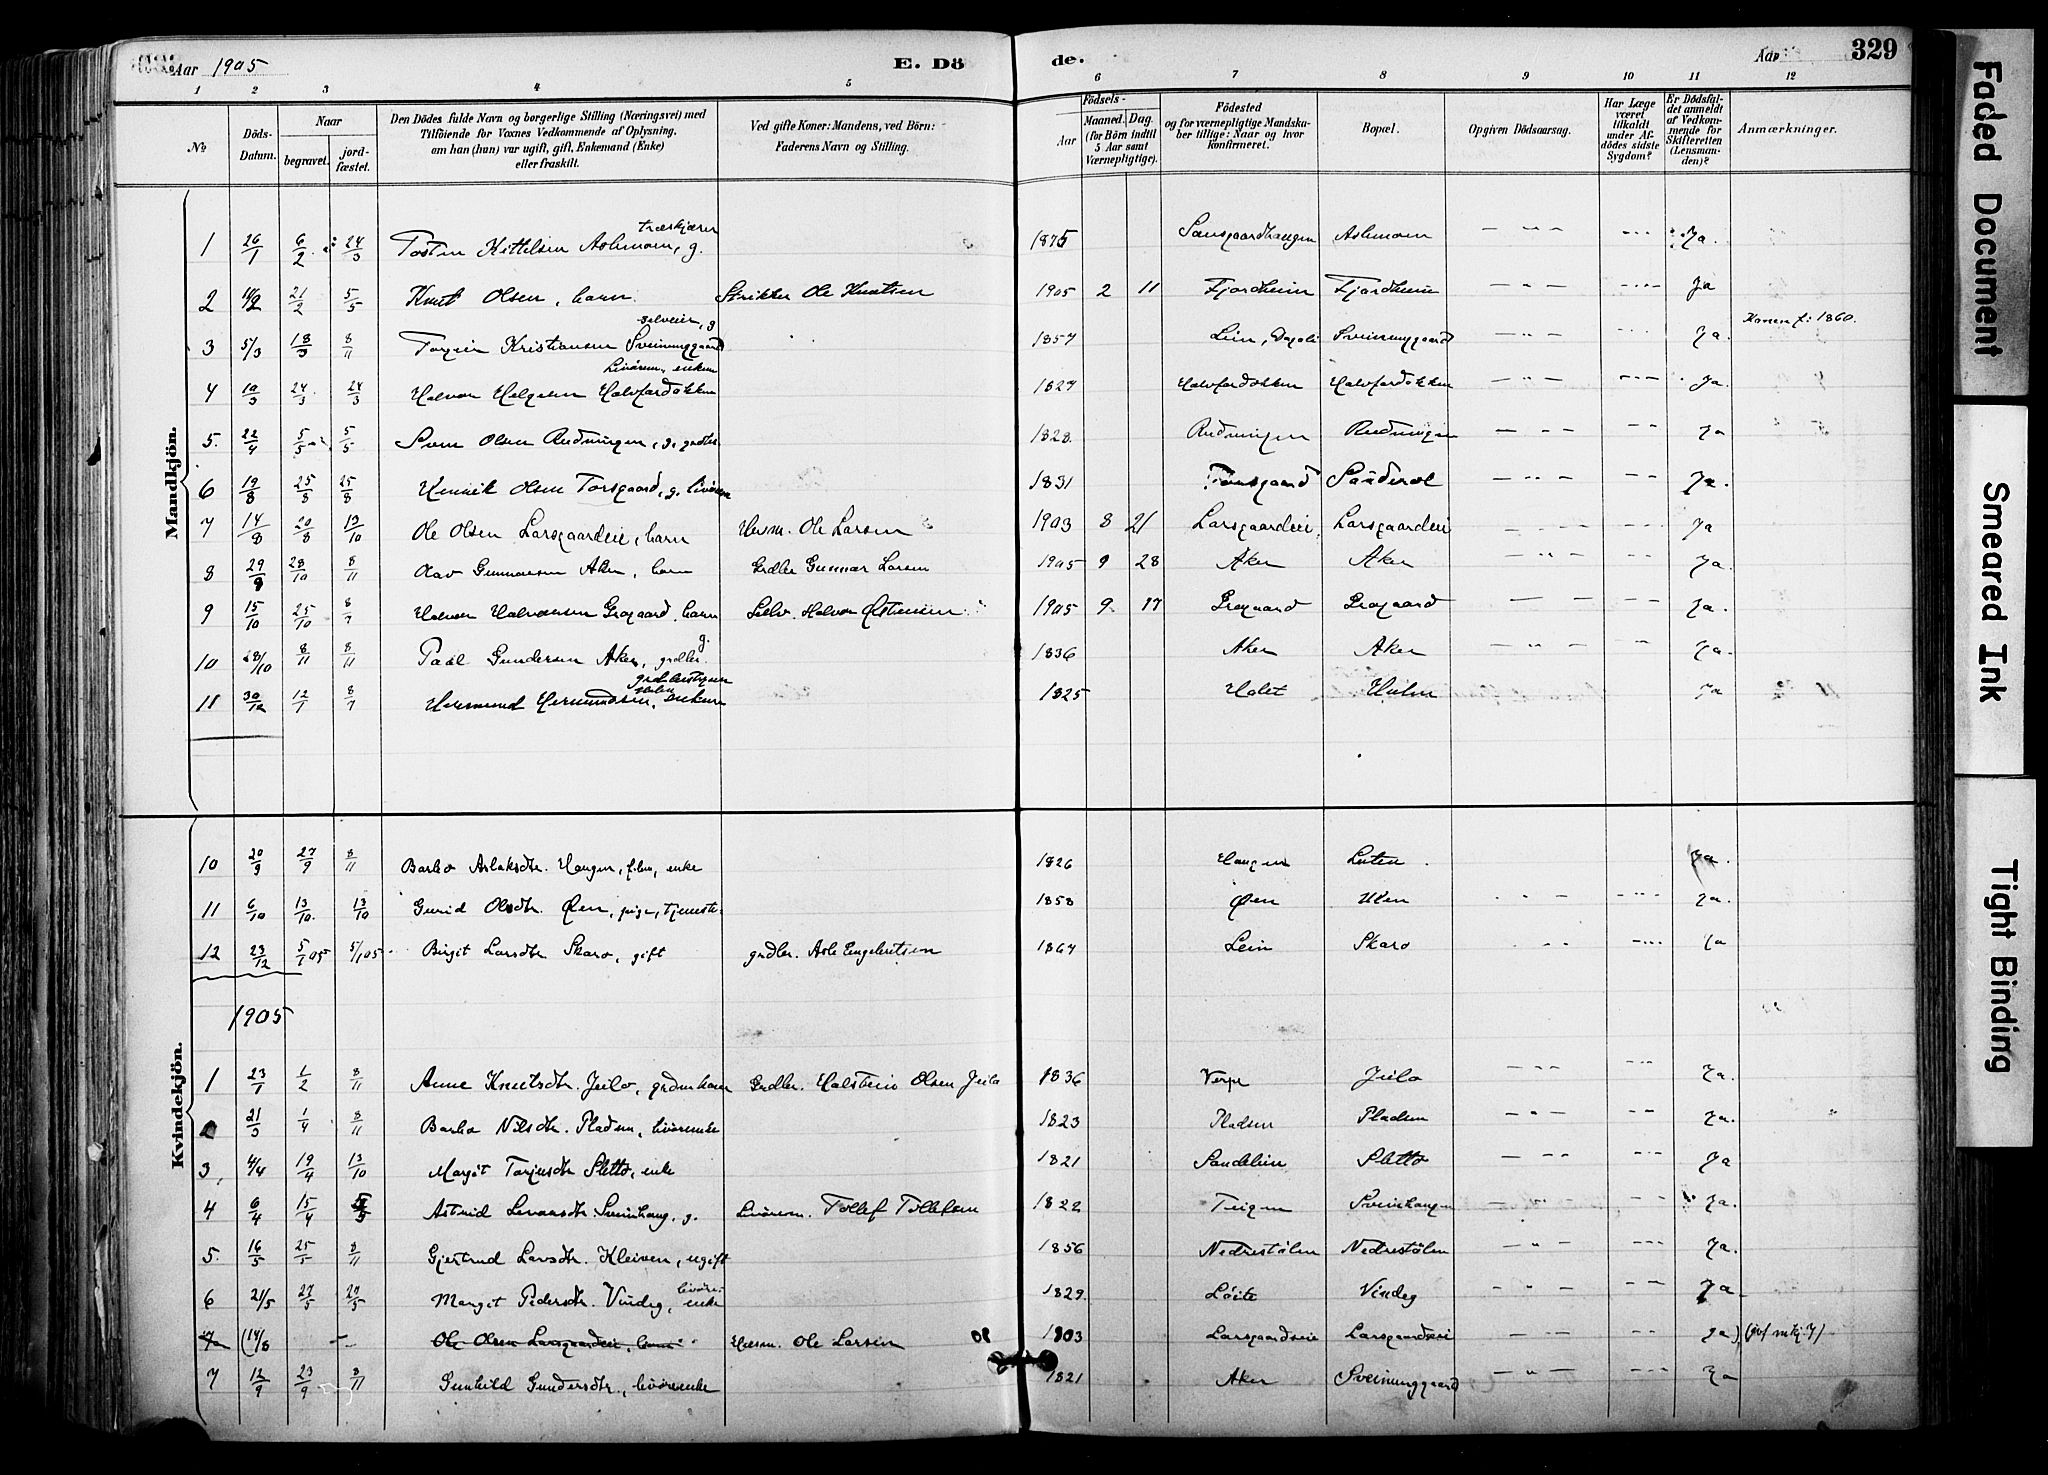 Aar 1905 E. Dö de. Aar 329
1 2 3 4 5 6 7 8 9 10 11 12
No Döds-Datum. Naar begravet. jordfæstet. Den Dödes fulde Navn og borgerlige Stilling (Næringsvei) med Tilföiende for Voxnes Vedkommende af Oplysning, om han (hun) var ugift, gift, Enkemand (Enke) eller fraskilt. Ved gifte Koner: Mandens, ved Börn: Faderens Navn og Stilling. Födsels- Aar Maaned. Dag. (for Börn indtil 5 Aar samt Værnepligtige). Födested og for værnepligtige Mandskaber tillige: Naar og hvor konfirmeret. Bopæl. Opgiven Dödsaarsag. Har Læge været tilkaldt under Afdödes sidste Sygdom? Er Dödsfaldet anmeldt af Vedkommende for Skifteretten (Lensmanden)? Anmærkninger.
Mandkjön.
1 26/1 6/2 24/3 Tosten Kittilsen Aslemoen, g. træskjærer 1875 Sansgaardhaugen Aslemoen Ja.
2 21/2 5/5 Knut Olsen, barn Strikker Ole Knutsen 1905 2 11 Fjordheim Fjordheim Ja
3 5/3 18/3 8/11 Torgeir Kristiansen Sveinunggaard selveier, g 1857 Lien, Dagali Sveinunggaard Ja. Konen f: 1860.
4 10/3 24/3 24/3 Halvor Helgesen Halvfardokken Livörem. enkem 1827 Halvfardokken Halvfardokken Ja.
5. 22/4 5/5 5/5 Sven Olsen Rudningen, g. grdbr. 1828. Rudningen Rudningen Ja
6 19/8 25/8 25/8 Henrik Olsen Torsgaard, g. livörem 1831 Torsgaard Sönderol Ja.
7 14/8 20/8 13/10 Ole Olsen Larsgaardeie, barn Husm. Ole Larsen 1903 8 21 Larsgaardeie Larsgaardeie Ja
8 29/9 28/10 8/11 Olav Gunnarsen Aker, barn Grdbr Gunnar Larsen 1905 9 28 Aker Aker Ja.
9 15/10 25/10 8/7 Halvor Halvorsen Gragaard, barn Selv. Halvor Østensen 1905 9. 17 Gragaard Gragaard Ja.
10 28/10 8/11 8/11 Paal Gundersen Aker, grdbr. g. 1836 Aker Aker Ja.
11 30/12 12/1 8/7 Hermund Hermundsen, enkem Holm 1825 Halet Holm Ja
10 20/9 27/9 8/11 Barbo Aslaksdtr. Haugen, enke 1826 Haugen Luten Ja.
11 6/10 13/10. 13/10 Gurid Olsdtr. Øen, pige, tjeneste 1858 Øen Ulen Ja.
12 23/12 5/1 05 5/1 05 Birgit Larsdtr Skaro, gift grdbr. Asle Engebretsen 1864 Lein Skaro Ja
1905
Kvindekjön.
1 23/1 1/2 8/11 Anne Knutsdtr. Jeilo, grdmkone Grdbr. Halstein Olsen Jeilo 1836 Verpe Jeilo Ja.
2 21/3 1/4 8/11 Barbo Nilsdtr. Pladsen, livörenke 1823 Pladsen Pladsen Ja.
3, 4/4 19/4 13/10 Margit Torjusdtr Sletto, enke 1821 Sandelien Sletto Ja
4 6/4 15/4 Astrid Levorsdtr. Sveinhaug, g. Livörem. Tollef Tollefsen 1822 Teigen Sveinhaugen Ja.
5. 16/5 25/5 8/11 Gjertrud Larsdtr. Kleiven, ugift 1856 Nedrestölen Nedrestölen Ja.
6 21/5 27/5 27/5 Margit Pedersdtr. Vindeg, livöre-enke 1829. Löite Vindeg Ja
7 (14/8 Ole Olsen Larsgaardeie, barn Husm. Ole Larsen 1903 Larsgaardseie Larsgaardseie Ja) (jvf mkj. 7)
7 12/9 23/9 8/11 Gunhild Gundersdtr., livörenke 1821 Aker Sveinunggaard Ja
Faded Document
Smeared Ink
Tight Binding